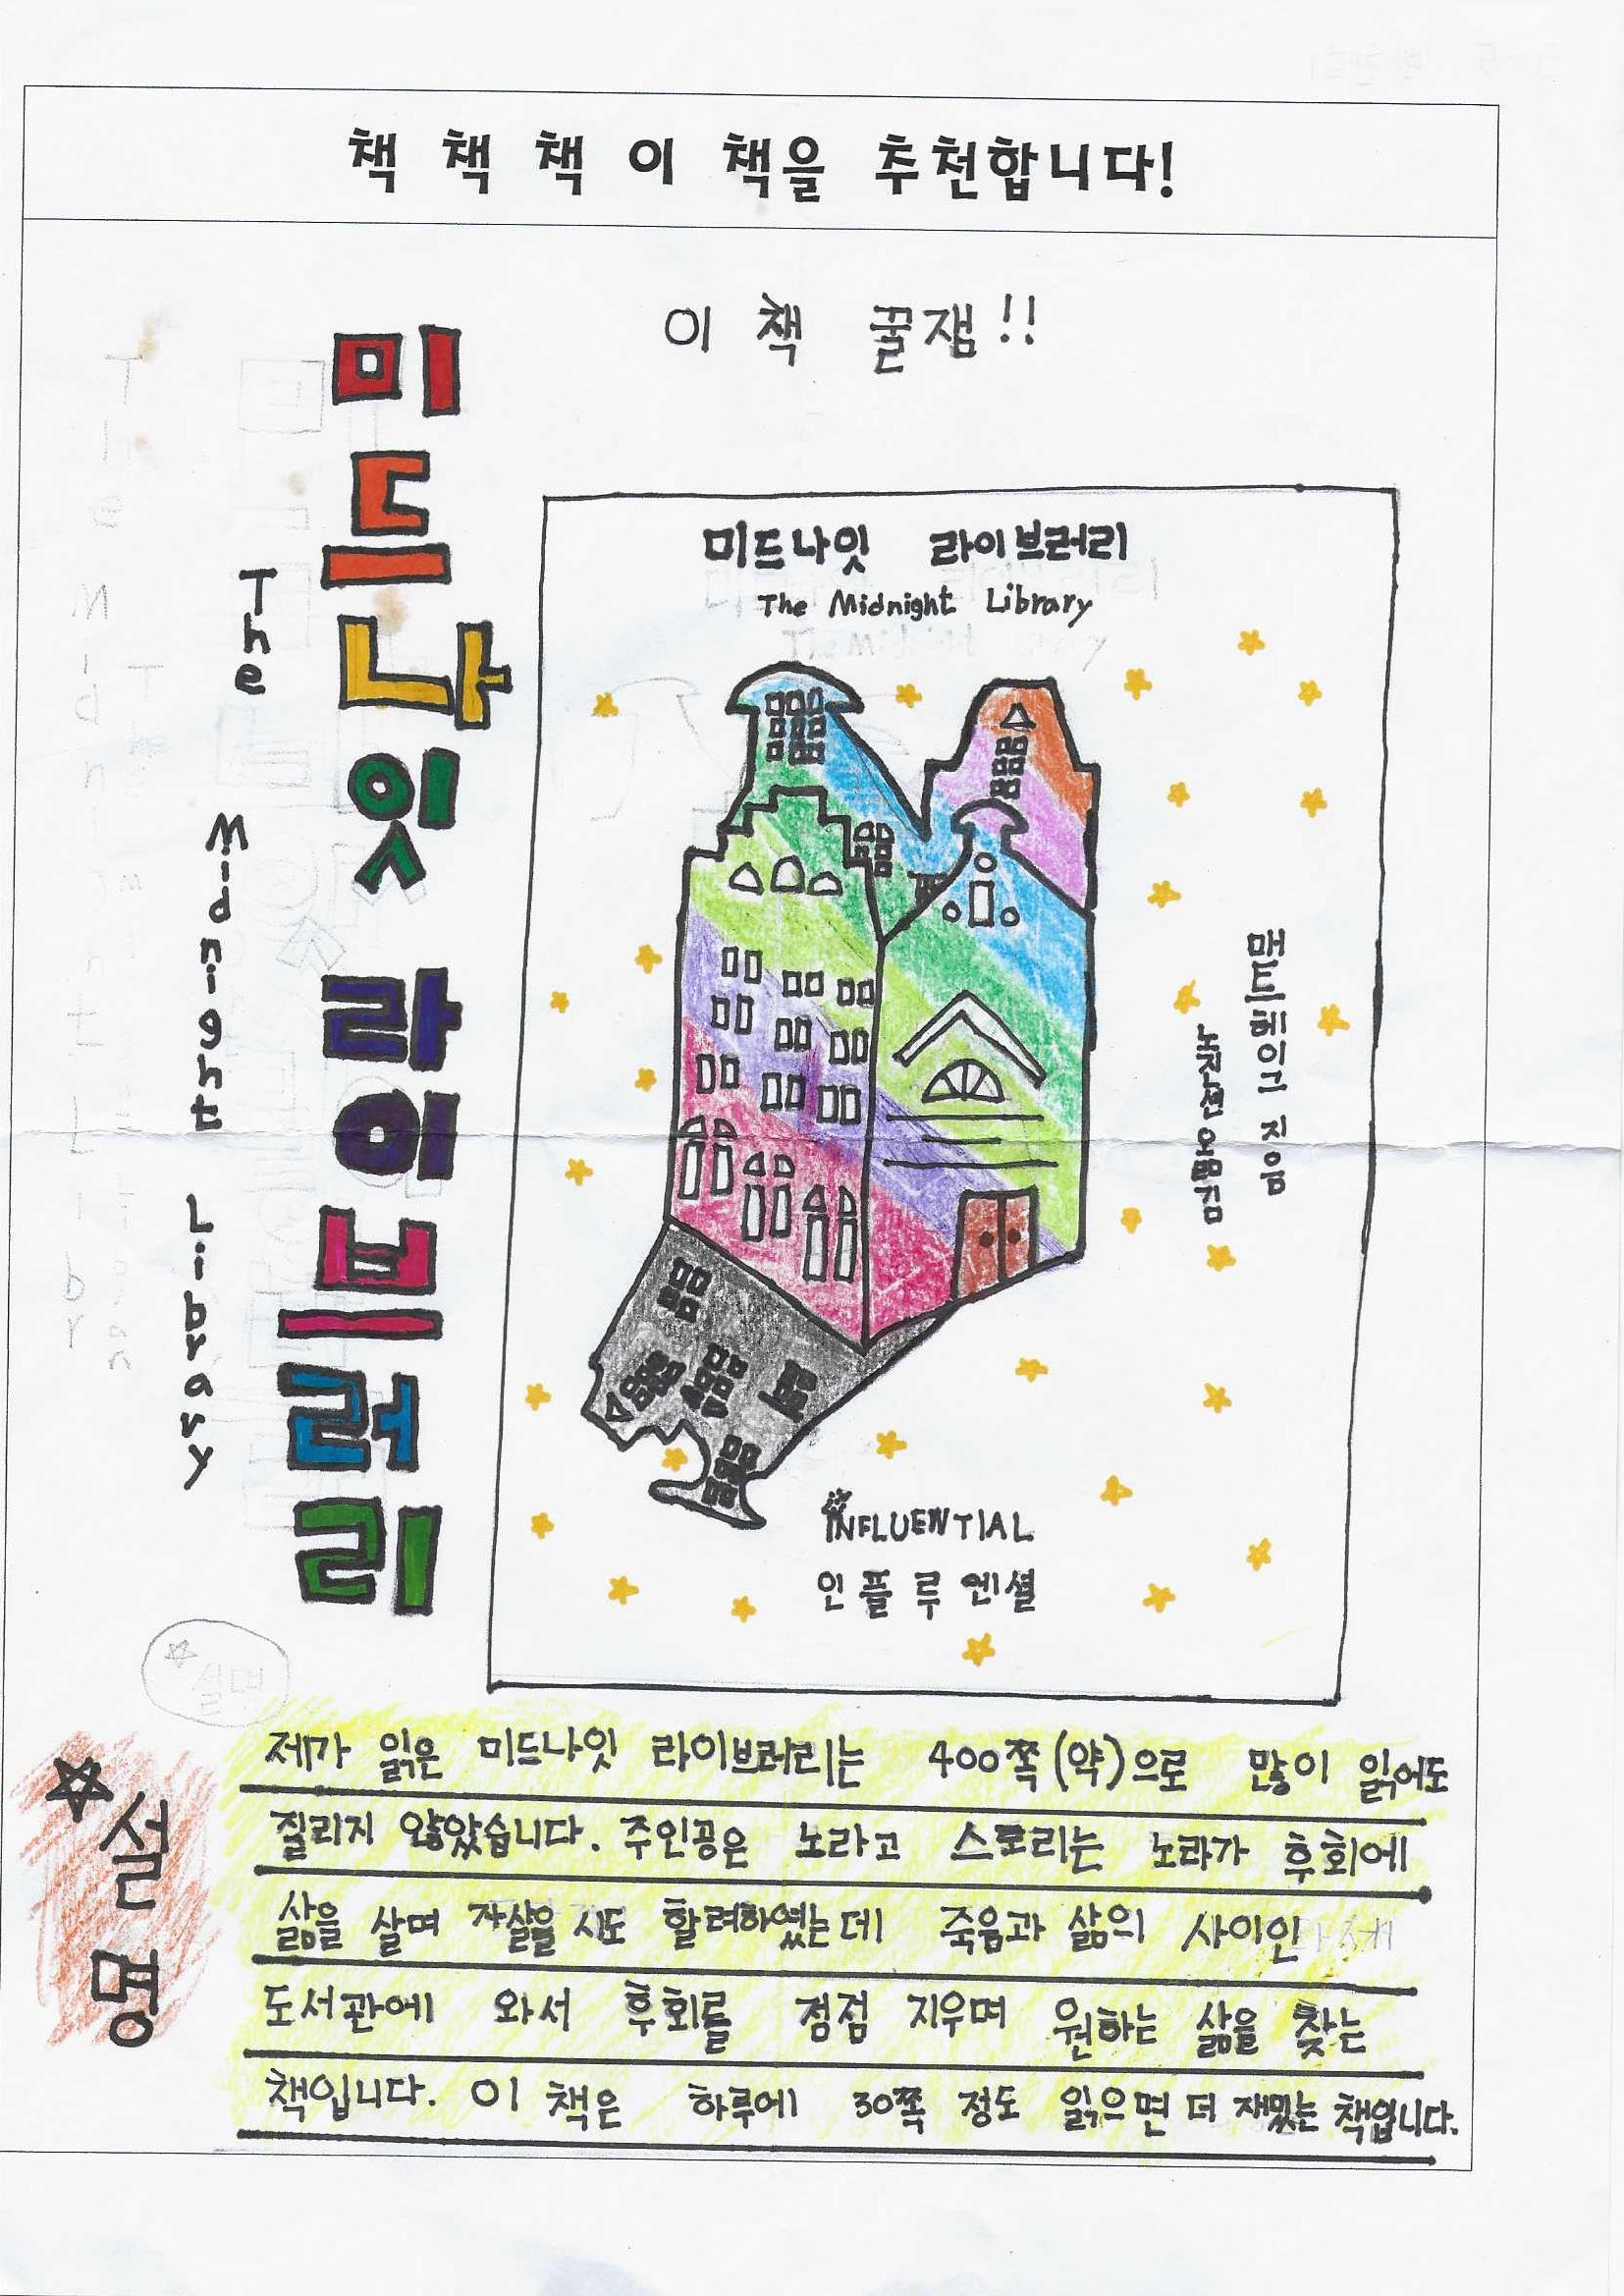 책 책 책 이 책을 추천합니다!
이 책 꿀잼!!
미드나잇 라이브러리
The Midnight Library
미드나잇 라이브러리
The Midnight Library
매트헤이그 지음
노진선 옮김
INFLUENTIAL
인플루엔셜
설명
제가 읽은 미드나잇 라이브러리는 400쪽(약)으로 많이 읽어도
질리지 않았습니다. 주인공은 노라고 스토리는 노라가 후회에
삶을 살며 자살을 시도 할려하였는데 죽음과 삶의 사이인
도서관에 와서 후회를 점점 지우며 원하는 삶을 찾는
책입니다. 이 책은 하루에 30쪽 정도 읽으면 더 재밌는 책입니다.
설명